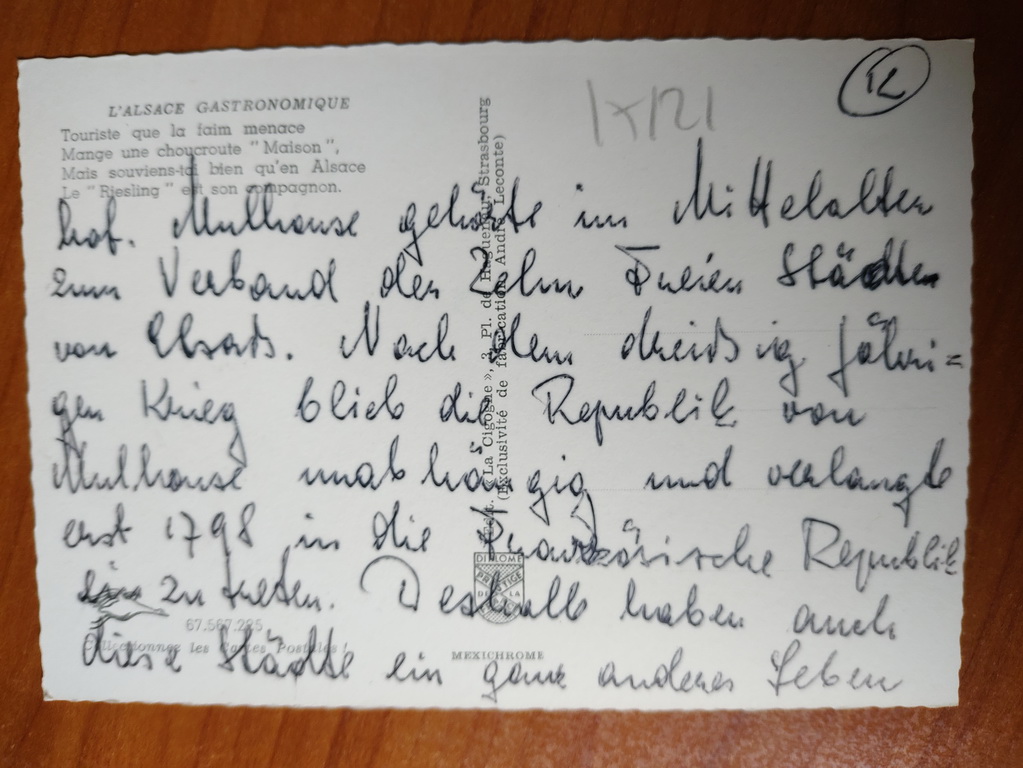 L'ALSACE GASTRONOMIQUE
Touriste que la faim menace
Mange une choucroute "Maison",
Mais souviens-toi bien qu'en Alsace
Le "Riesling" est son compagnon.
12
hof. Mulhouse gehörte im Mittelalter
zum Verband der Zehn Freien Städten
von Elsaß. Nach dem dreißig jähri=
gen Krieg blieb die Republik von
Mulhouse unabhängig und verlangte
erst 1798 in die Französische Republik
ein zu treten. Deshalb haben auch
diese Städte ein ganz anderes Leben
Edit. « La Cigogne », 3, Pl. de Haguenau, Strasbourg
(Exclusivité de fabrication André Leconte)
DIPLOME
PRESTIGE
DE LA
67.567.225
Collectionnez les Cartes Postales !
MEXICHROME